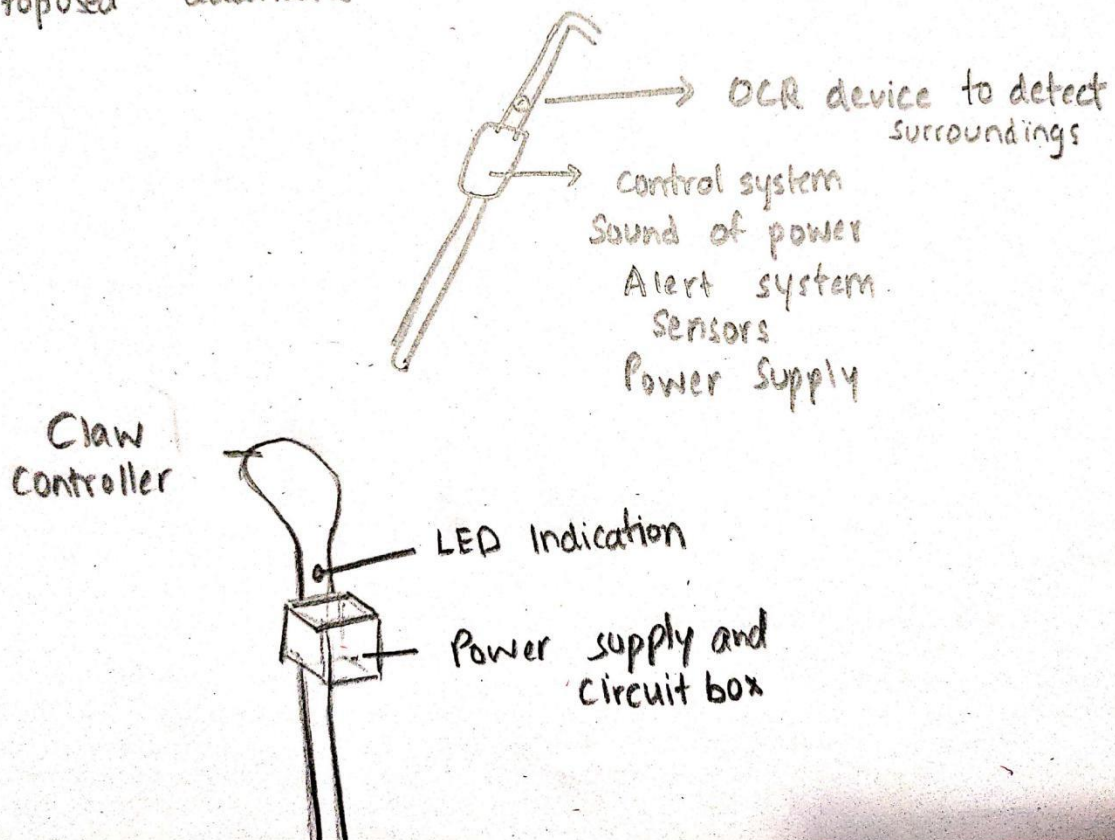 OCR device to detect
surroundings
control system
Sound of power
Alert system
Sensors
Power Supply
Claw
Controller
LED Indication
Power supply and
circuit box